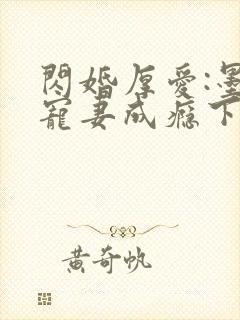 閃婚厚愛:墨
寵妻成癮下
黃奇帆